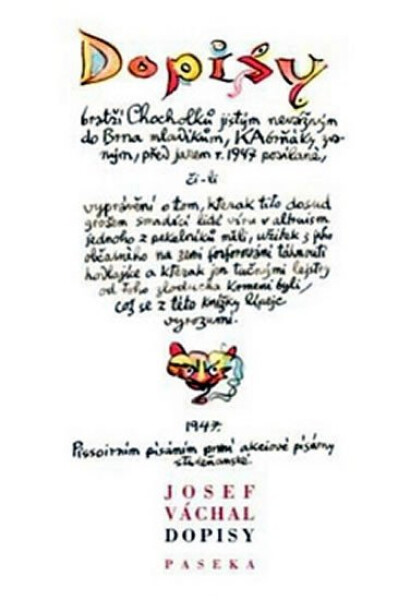 Dopisy
bratří Chocholků jistým nevážným
do Brna mladíkům, KAbrňáky zva-
ným, před jarem r. 1947 posílané,
či-li
vyprávění o tom, kterak tito dosud
grošem smradící lidé víru v altruism
jednoho z pekelníků měli, užitek z jeho
občasného na zemi fosforování táhnouti
a kterak jen tučnými lejstry
od toho zloducha krmeni byli,
což se z této knížky lépeje
vyrozumí.
1947.
Pissoirním písáním první akciové písárny
studeňanské.
JOSEF
VÁCHAL
DOPISY
PASEKA